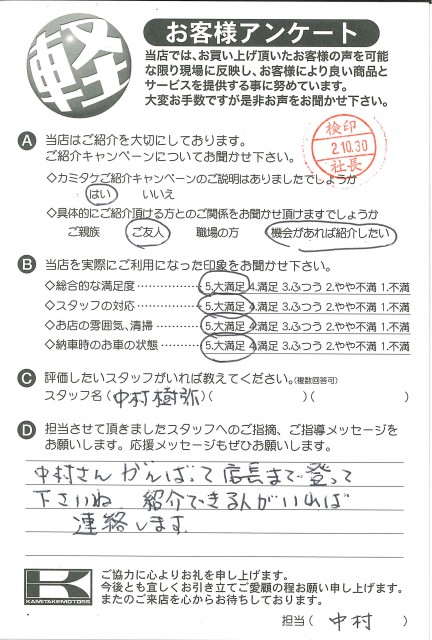 軽
お客様アンケート
当店では、お買い上げ頂いたお客様の声を可能
な限り現場に反映し、お客様により良い商品と
サービスを提供する事に努めています。
大変お手数ですが是非お声をお聞かせ下さい。
A 当店はご紹介を大切にしております。
ご紹介キャンペーンについてお聞かせ下さい。
検印
2.10.30
社長
◇カミタケキャンペーンのご説明はありましたでしょうか
はい いいえ
◇具体的にご紹介頂ける方とのご関係をお聞かせ頂けますでしょうか
ご親族 ご友人 職場の方 機会があれば紹介したい
B 当店を実際にご利用になった印象をお聞かせ下さい。
◇総合的な満足度 5.大満足 4.満足 3.ふつう 2.やや不満 1.不満
◇スタッフの対応 5.大満足 4.満足 3.ふつう 2.やや不満 1.不満
◇お店の雰囲気、清掃 5.大満足 4.満足 3.ふつう 2.やや不満 1.不満
◇納車時のお車の状態 5.大満足 4.満足 3.ふつう 2.やや不満 1.不満
C 評価したいスタッフがいれば教えてください。(複数回答可)
スタッフ名(中村樹弥)( )( )
D 担当させて頂きましたスタッフへのご指摘、ご指導メッセージを
お願いします。応援メッセージもぜひお願いします。
中村さん がんばって店長まで登って
下さいね 紹介できる人がいれば
連絡します.
K
KAMITAKEMOTORS
ご協力に心よりお礼を申し上げます。
今後とも宜しくお引き立てご愛顧の程お願い申し上げます。
またのご来店を心からお待ちしております。
担当( 中村 )